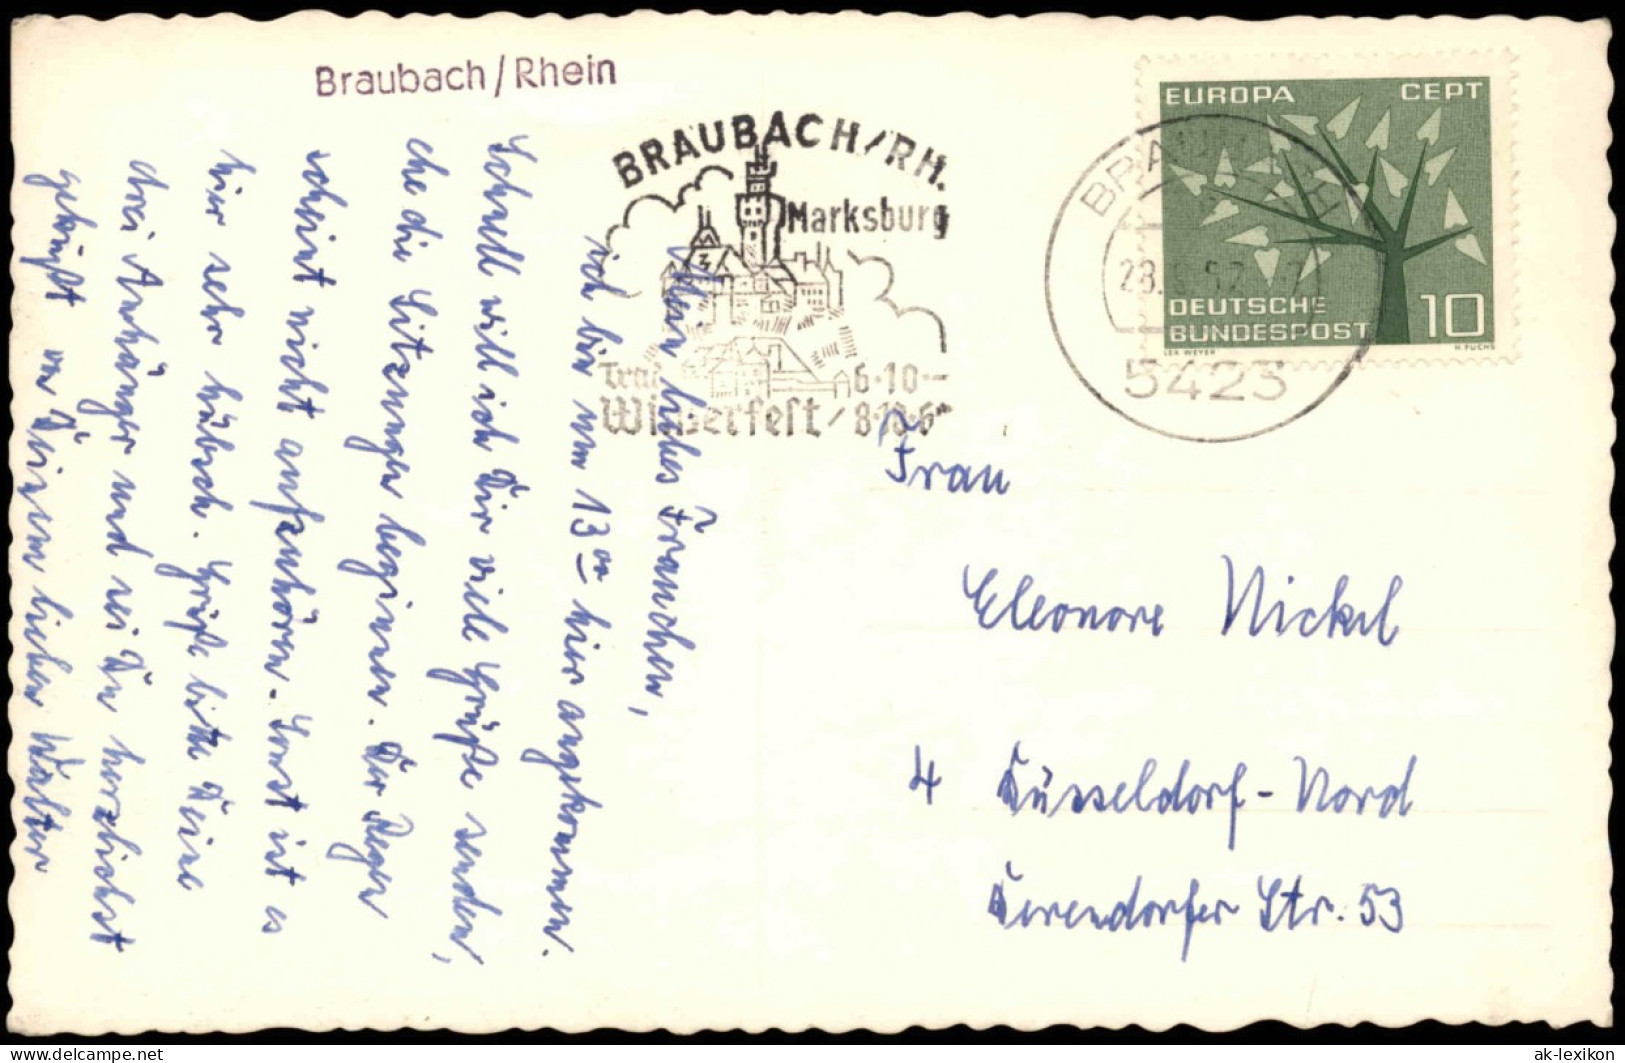 Braubach/Rhein
BRAUBACH/RH.
Marksburg
6.10.-
Winzerfest/8.10.
EUROPA CEPT
DEUTSCHE
BUNDESPOST 10
LEX WEYER H. FUCHS
5423
Mein liebes Frauchen,
ich bin um 13 00 hier angekommen.
Schnell will ich Dir viele Grüße senden,
ehe die Sitzungen beginnen. Der Regen
scheint nicht aufzuhören. Sonst ist es
hier sehr hübsch. Grüße bitte Deine
drei Anhänger und sei Du herzlichst
geküßt von Deinem lieben Walter
Frau
Eleonore Nickel
4 Düsseldorf-Nord
Derendorfer Str. 53
ak-lexikon